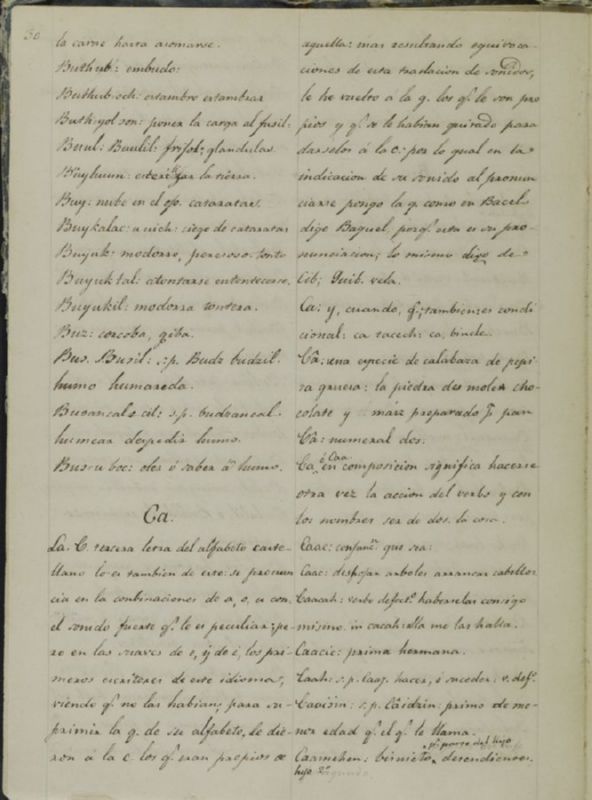 30
la carne hasta asomarse.
Buthub: embudo:
Buthub-och: estambre estambrar
Buth-yol son: poner la carga al fusil:
Buul: Buulil: frisol, glandulas.
la tierra.
Buy: nube en el ojo. cataratas.
Buykalac: u uich: ciego de cataratas
Buyuk: modorro, perezoso. tonto
Buyuktal: atontarse entontecerse.
Buyukil: modorra tontera.
Buz: corcoba, giba.
Bus. Busil: s.p. Budz budzil.
humo humareda.
Busancal s.cil: s.p. budzancal
humear despedir humo.
Bus-u boc: oler ó saber áª humo.
Ca.
La C. tercera letra del alfabeto caste-
llano lo es tambien de este: se pronun
cia en la conbinaciones de a, o, u con
el sonido fuerte q.e le es peculiar: pe-
ro en las suaves de e, y de i, los pri-
meros escritores de este idioma,
viendo q.e no las habian, para su-
primir la q. de su alfabeto, le die-
ron á la c. los q.e eran propios de
aquella: mas resultando equivoca-
ciones de esta traslacion de sonidos,
le he vuelto á la q. los q.e le son pro
pios y q.e se le habian quitado para
darselos á la c: por lo qual en la
indicacion de su sonido al pronun
ciarse pongo la q. como en Bacel
digo Baquel, porq.e esta es su pro-
nunciacion; lo mismo digo de
Cib; Quib. vela.
Ca: y, cuando, q.e; tambien es condi
cional: ca tacech: ca, binele.
Câ: una especie de calabaza de pepi
ta gruesa: la piedra de moler cho-
colate y maiz preparado p.a pan
Câ: numeral dos.
Ca, ó Caa en composicion significa hacerse
otra vez la accion del verbo y con
los nombres ser de dos. la cosa.
Caac: conjunc.n que sea:
Caac: despojar arboles arrancar cabellos
Caacah: verbo defect.o haberselas consigo
mismo. in cacah: alla me las habia.
Caacic: prima hermana.
Caah: s.p. hacer, ó suceder: v. def.o
s.p. Câidzin: primo de me-
nor edad q.e el q.e le llama.
Caamehen: bisnieto p.r parte del hijo, descendiente.
hijo 2.o segundo.